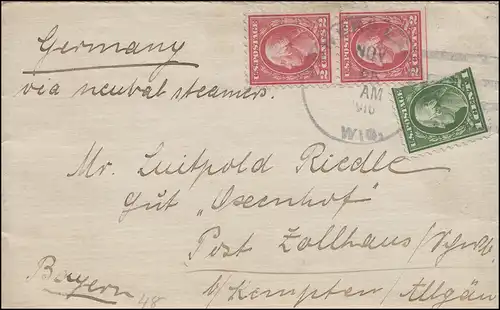 Germany
via neutral steamers.
U.S. POSTAGE
2 CENTS 2
U.S. POSTAGE
2 CENTS 2
U.S. POSTAGE
1 CENT 1
NOV
AM
WIS.
Mr. Luitpold Riedle
Gut „Osenhof"
Post Zollhaus/
b/Kempten/Allgäu
Bayern
48